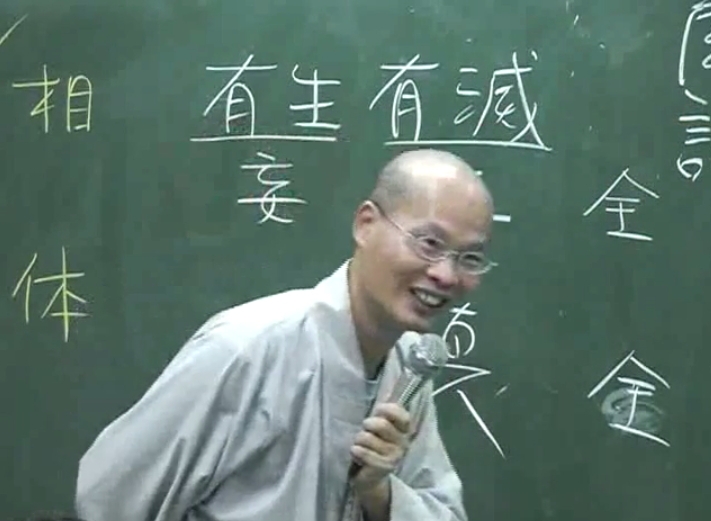 相 有生有滅
妄 全
体 真 全